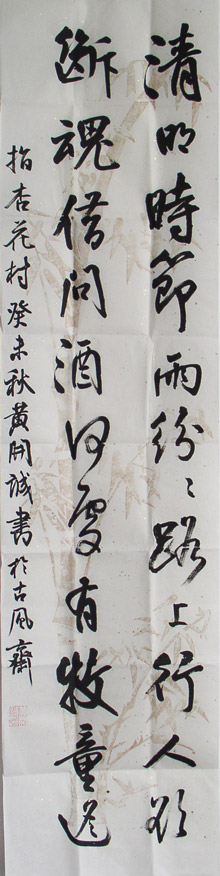 清明時節雨紛〻路上行人欲
斷魂借問酒何處有牧童遥
指杏花村癸未秋黄開誠書於古風齋